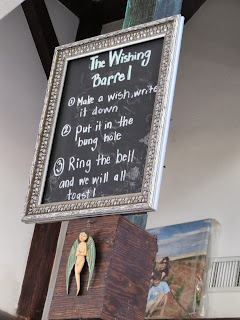 The Wishing
Barrel
① Make a wish, write
it down
② Put it in the
bung hole
③ Ring the bell
and we will all
toast!